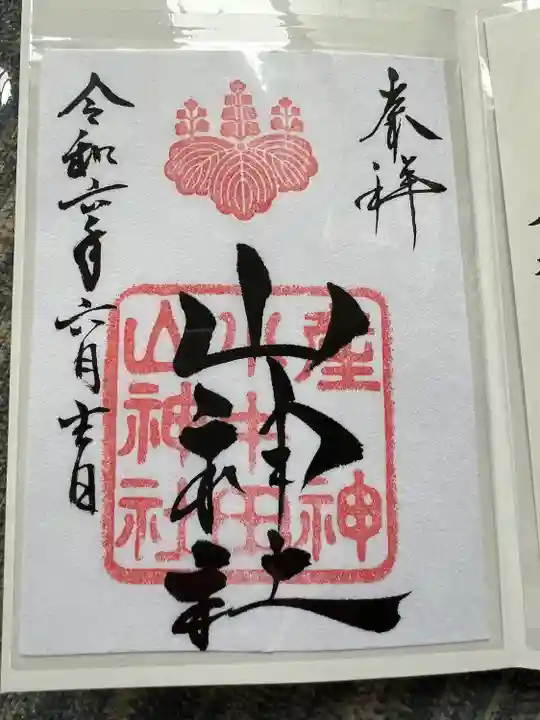 奉拝
山神社
産神
小牛田
山神社
令和六年六月吉日